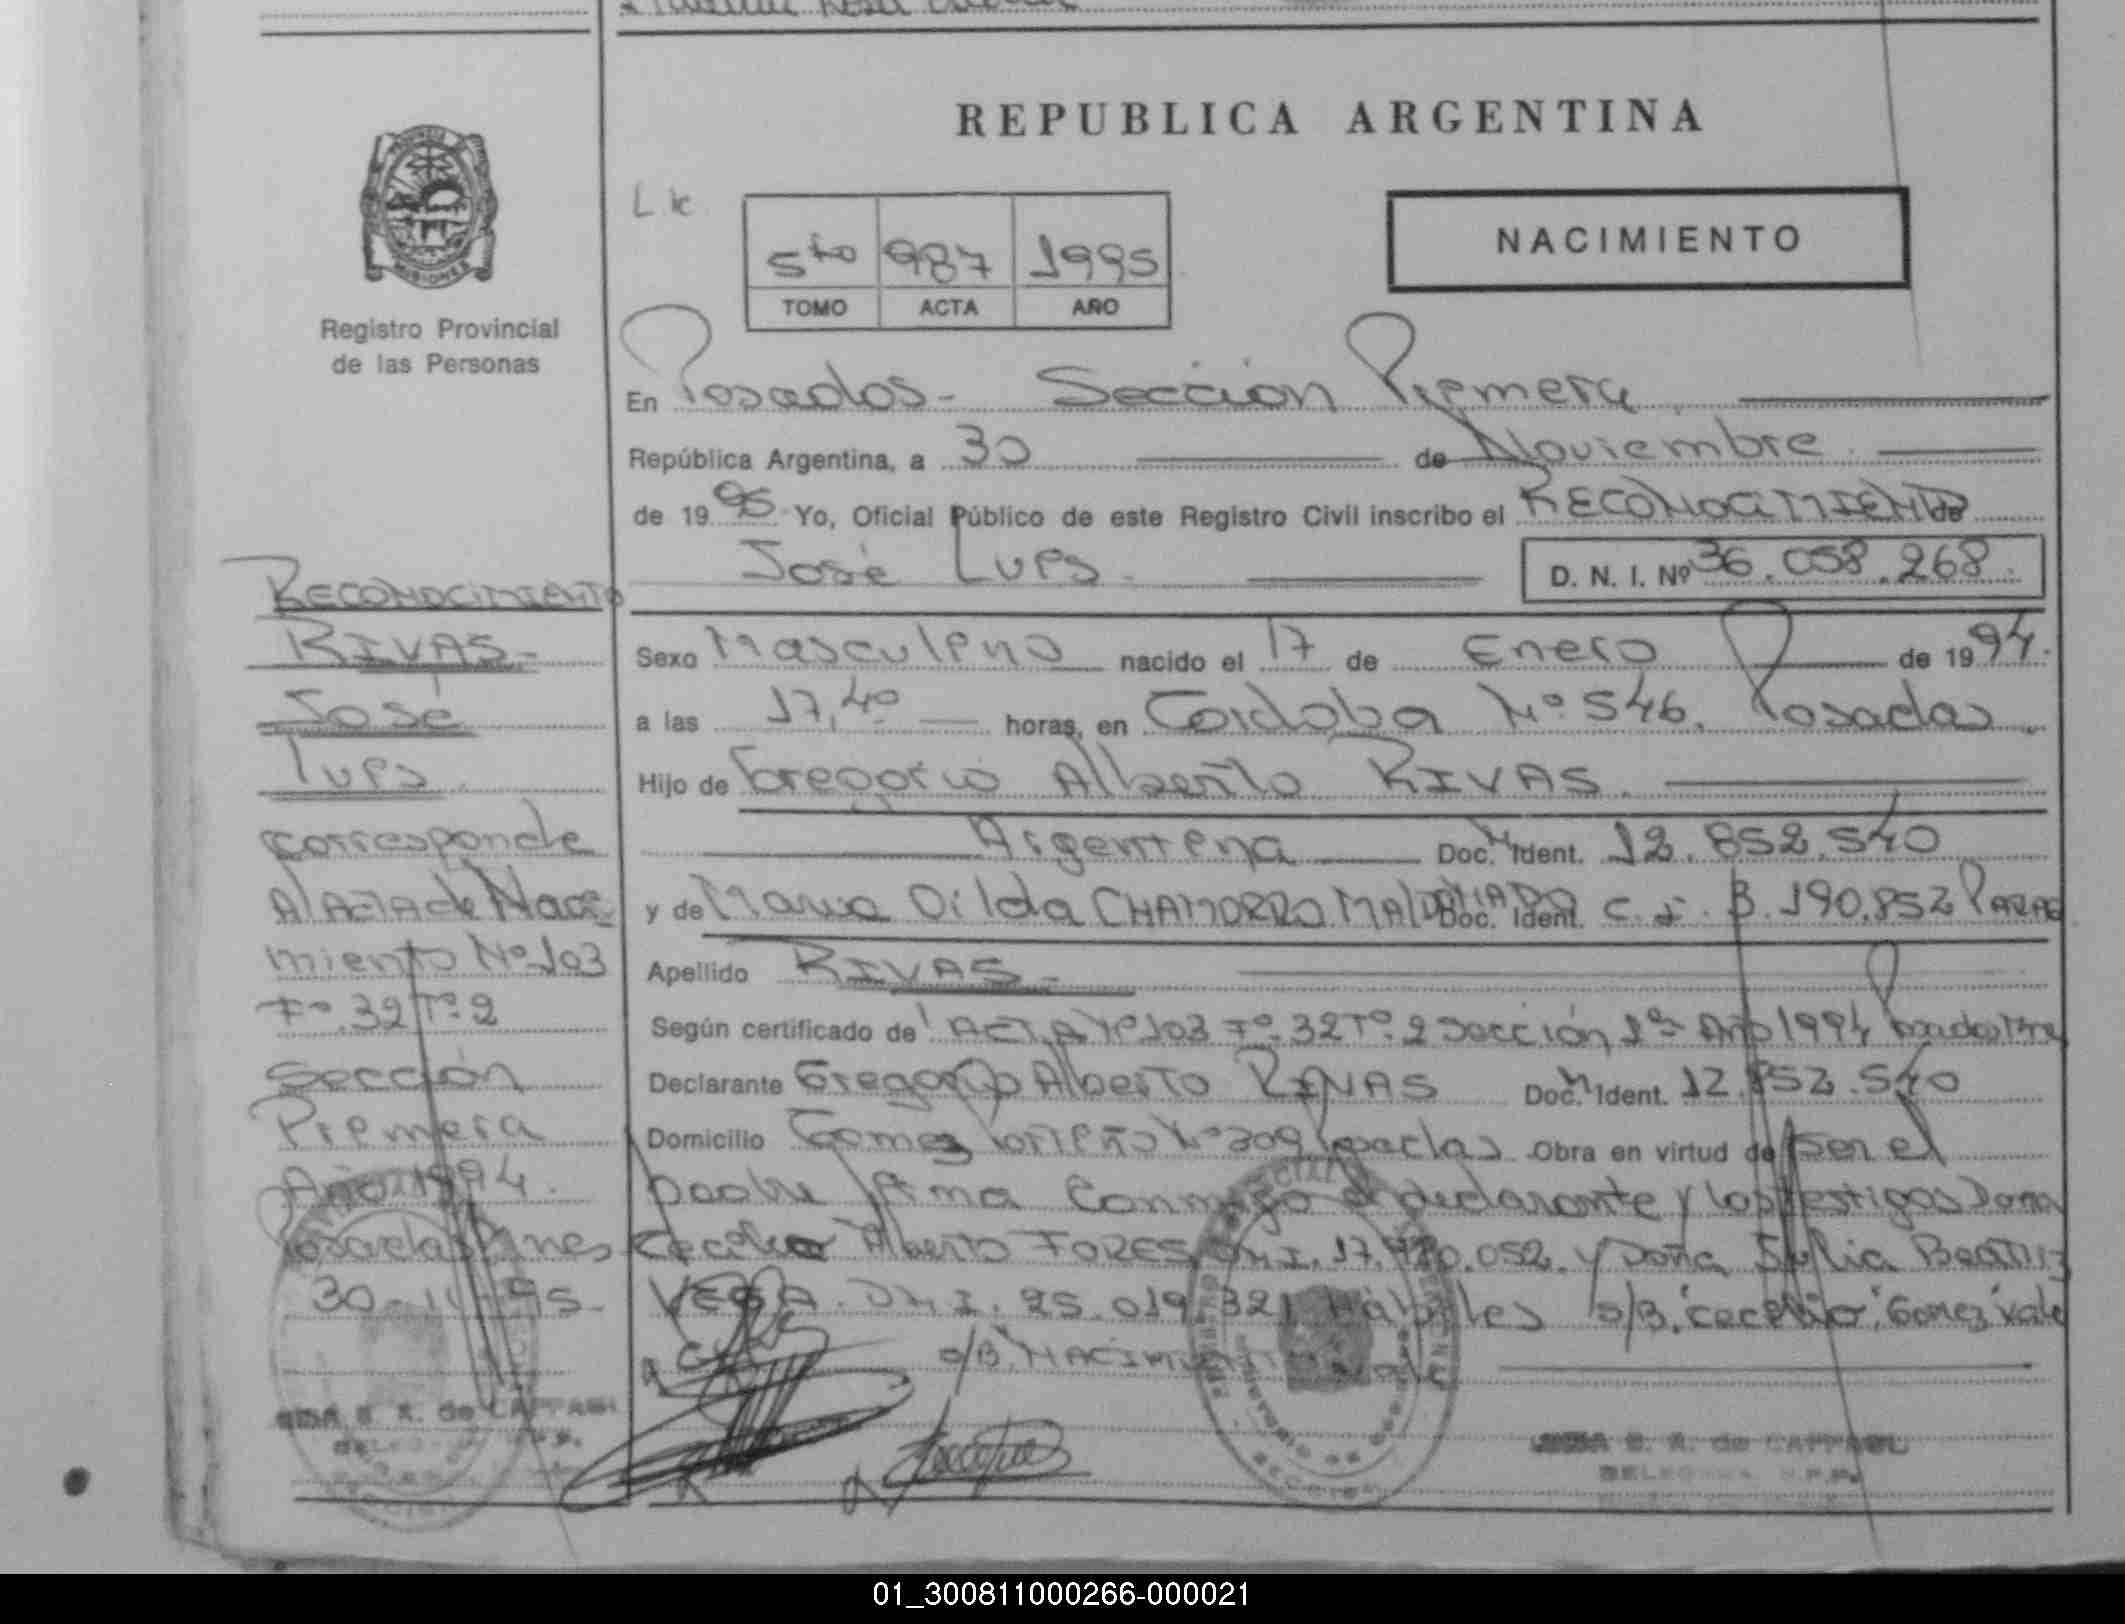 REPUBLICA ARGENTINA
PROVINCIA
MISIONES
Registro Provincial
de las Personas
L. 1c
5to 987 1995
TOMO ACTA AÑO
NACIMIENTO
En Posadas - Sección Primera
República Argentina, a 30 de Noviembre
de 1995 Yo, Oficial Público de este Registro Civil inscribo el RECONOCIMIENTO de
José Luis D. N. I. Nº 36.058.268
Sexo Masculino nacido el 17 de Enero de 1994.
a las 17,40 horas, en Cordoba Nº 546. Posadas
Hijo de Gregorio Alberto RIVAS.
Argentina Doc. Ident. 12.852.540
y de Maria Oilda CHAMORRO MALDONADO Doc. Ident. C. I. B. 190.852
Apellido RIVAS.-
Según certificado de ACTA Nº 103 Fº. 32 Tº. 2 Sección 1ª Año 1994
Declarante Gregorio Alberto RIVAS Doc. Ident. 12.852.540
Domicilio Gomez Nº 309 Posadas Obra en virtud de ser el
padre firma conmigo el declarante y los testigos
Alberto D.N.I. 17. .052. y Doña Beatriz
VEGA. D.N.I. 25.019.321 Hábiles S/B. Gomez vale
S/B. NACIMIENTO
RECONOCIMIENTO
RIVAS-
José
Luis
corresponde
Al ACTA de Naci-
miento Nº 103
Fº. 32 Tº. 2
Sección
Primera
Año 1994.
Posadas Mnes
30-11-95-
S. R. de CAPPAGLI
S. R. de CAPPAGLI
01_300811000266-000021